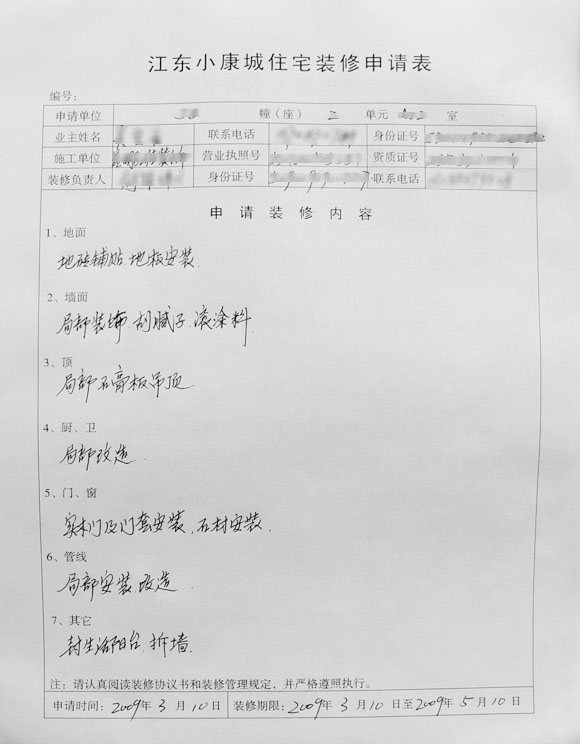 江东小康城住宅装修申请表
编号：
申请单位 38 幢（座） 2 单元 室
业主姓名 联系电话 身份证号
施工单位 营业执照号 资质证号
装修负责人 身份证号 联系电话
申请装修内容
1、地面
地砖铺贴.地板安装.
2、墙面
局部装饰.刮腻子.滚涂料
3、顶
局部石膏板吊顶.
4、厨、卫
局部改造.
5、门、窗
实木门及门套安装、石材安装.
6、管线
局部安装.改造
7、其它
封生活阳台.拆墙.
注：请认真阅读装修协议书和装修管理规定，并严格遵照执行。
申请时间：2009年 3 月 10 日 装修期限：2009年 3 月 10 日至2009年 5 月 10 日